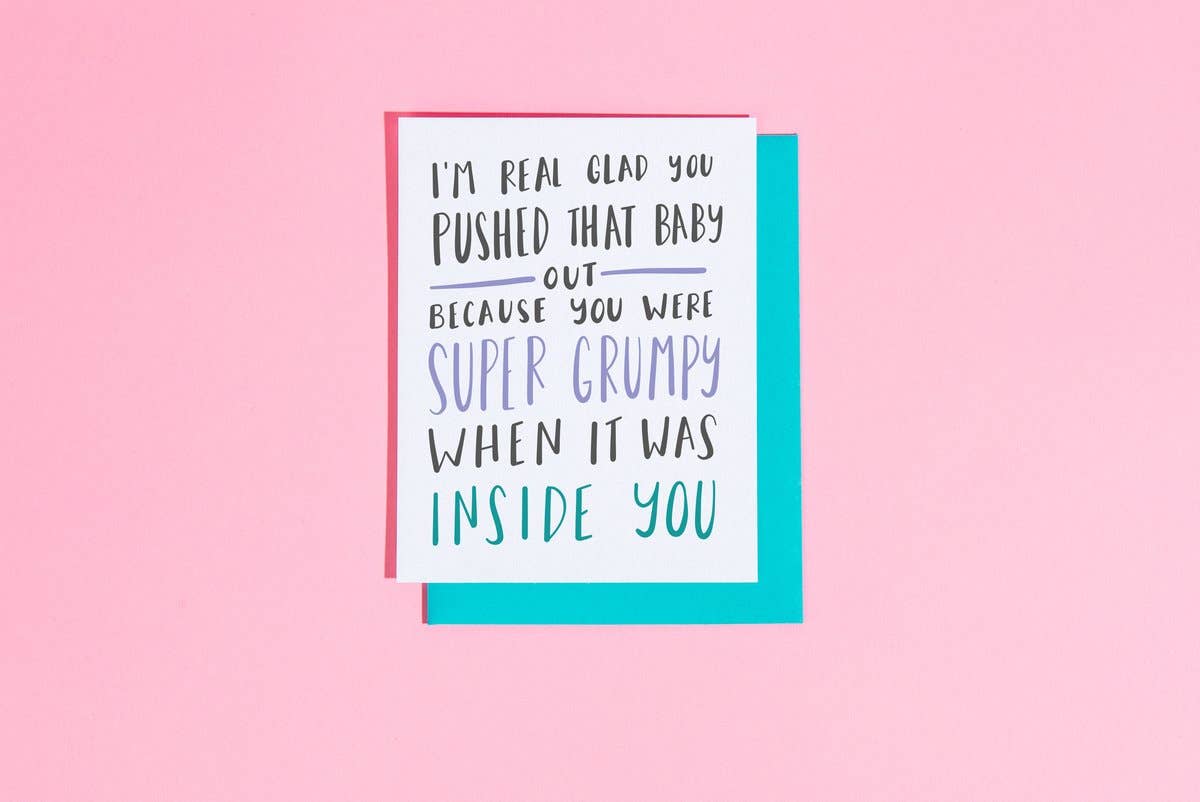 I'M REAL GLAD YOU
PUSHED THAT BABY
OUT
BECAUSE YOU WERE
SUPER GRUMPY
WHEN IT WAS
INSIDE YOU